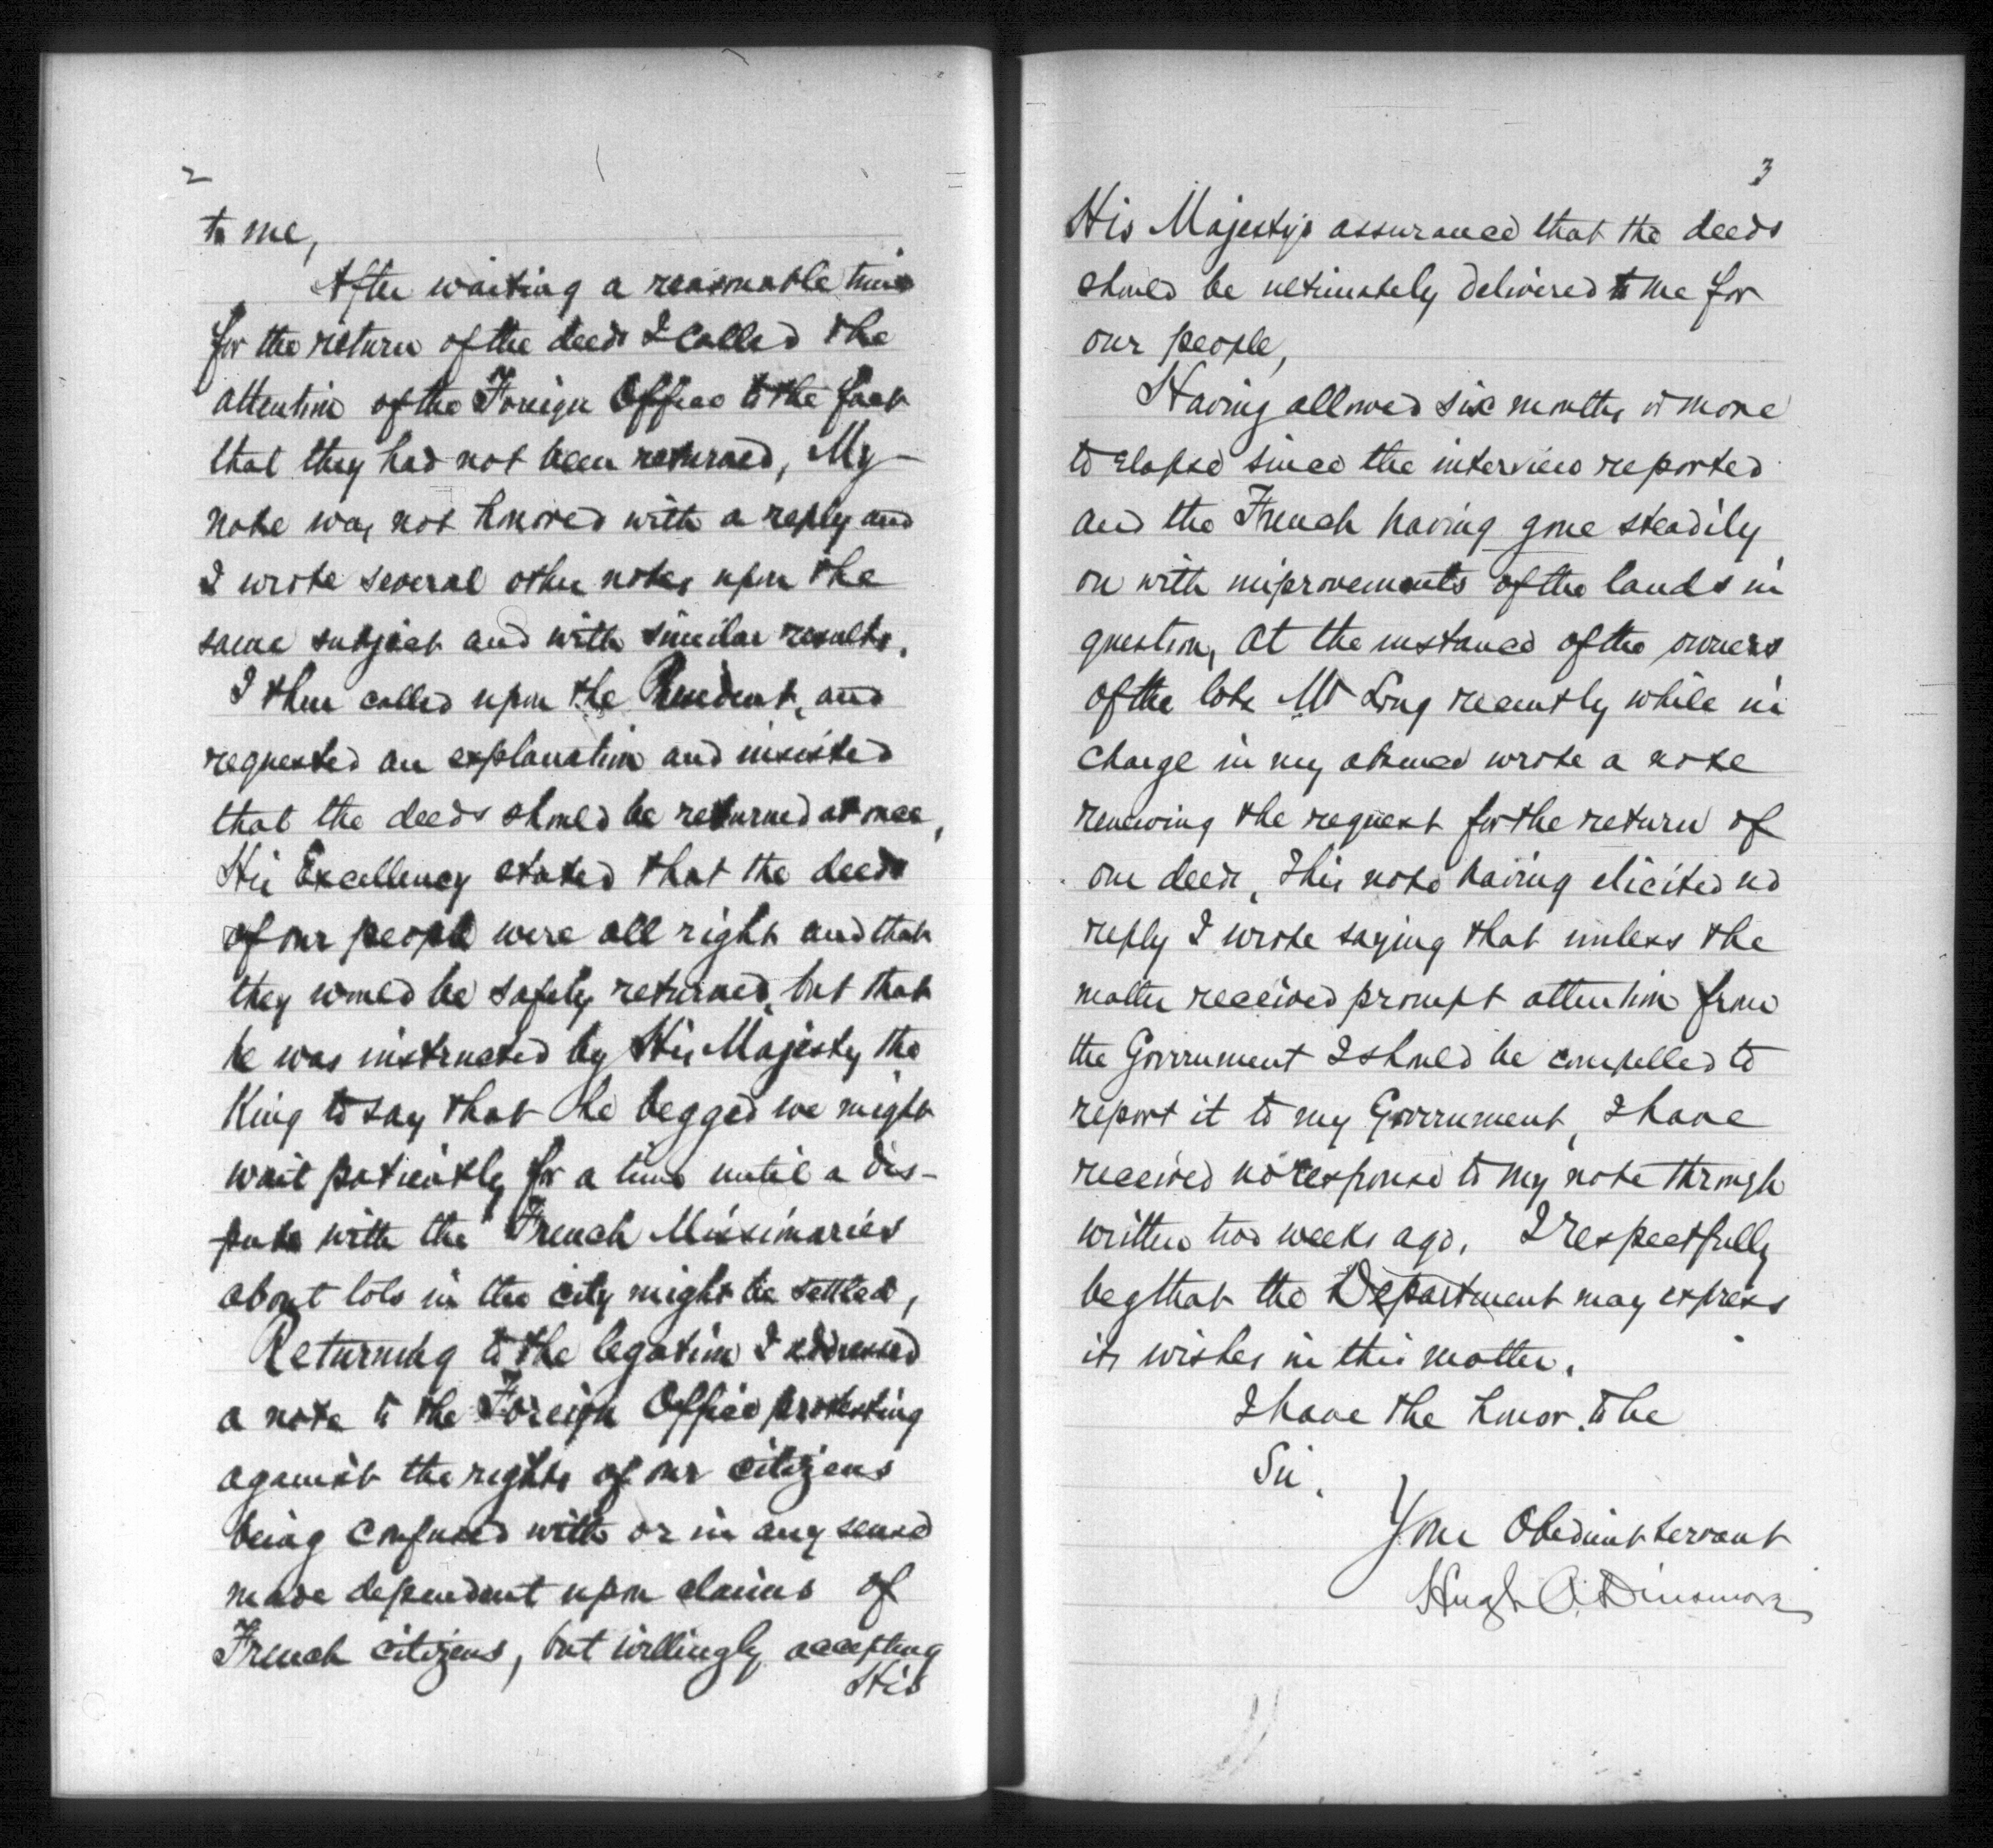 2
to me,
After waiting a reasonable time
for the return of the deeds I called the
attention of the Foreign Office to the fact
that they had not been returned, My
note was not honored with a reply and
I wrote several other notes upon the
same subject and with similar results.
I then called upon the President, and
requested an explanation and insisted
that the deeds should be returned at once,
His Excellency stated that the deeds
of our people were all right and that
they would be safely returned, but that
he was instructed by His Majesty the
King to say that he begged we might
wait patiently for a time until a dis-
pute with the French Missionaries
about lots in the city might be settled,
Returning to the legation I addressed
a note to the Foreign Office protesting
against the rights of our citizens
being confused with or in any sense
made dependent upon claims of
French citizens, but willingly accepting
His
3
His Majesty's assurance that the deeds
should be ultimately delivered to me for
our people,
Having allowed six months or more
to elapse since the interview reported
and the French having gone steadily
on with improvements of the lands in
question, at the instance of the owners
of the lots Mr Long recently while in
charge in my absence wrote a note
renewing the request for the return of
our deeds, This note having elicited no
reply I wrote saying that unless the
matter received prompt attention from
the Government I should be compelled to
report it to my Government, I have
received no response to my note through
written two weeks ago. I respectfully
beg that the Department may express
its wishes in this matter.
I have the honor to be
Sir,
Your Obedient servant
Hugh A. Dinsmore